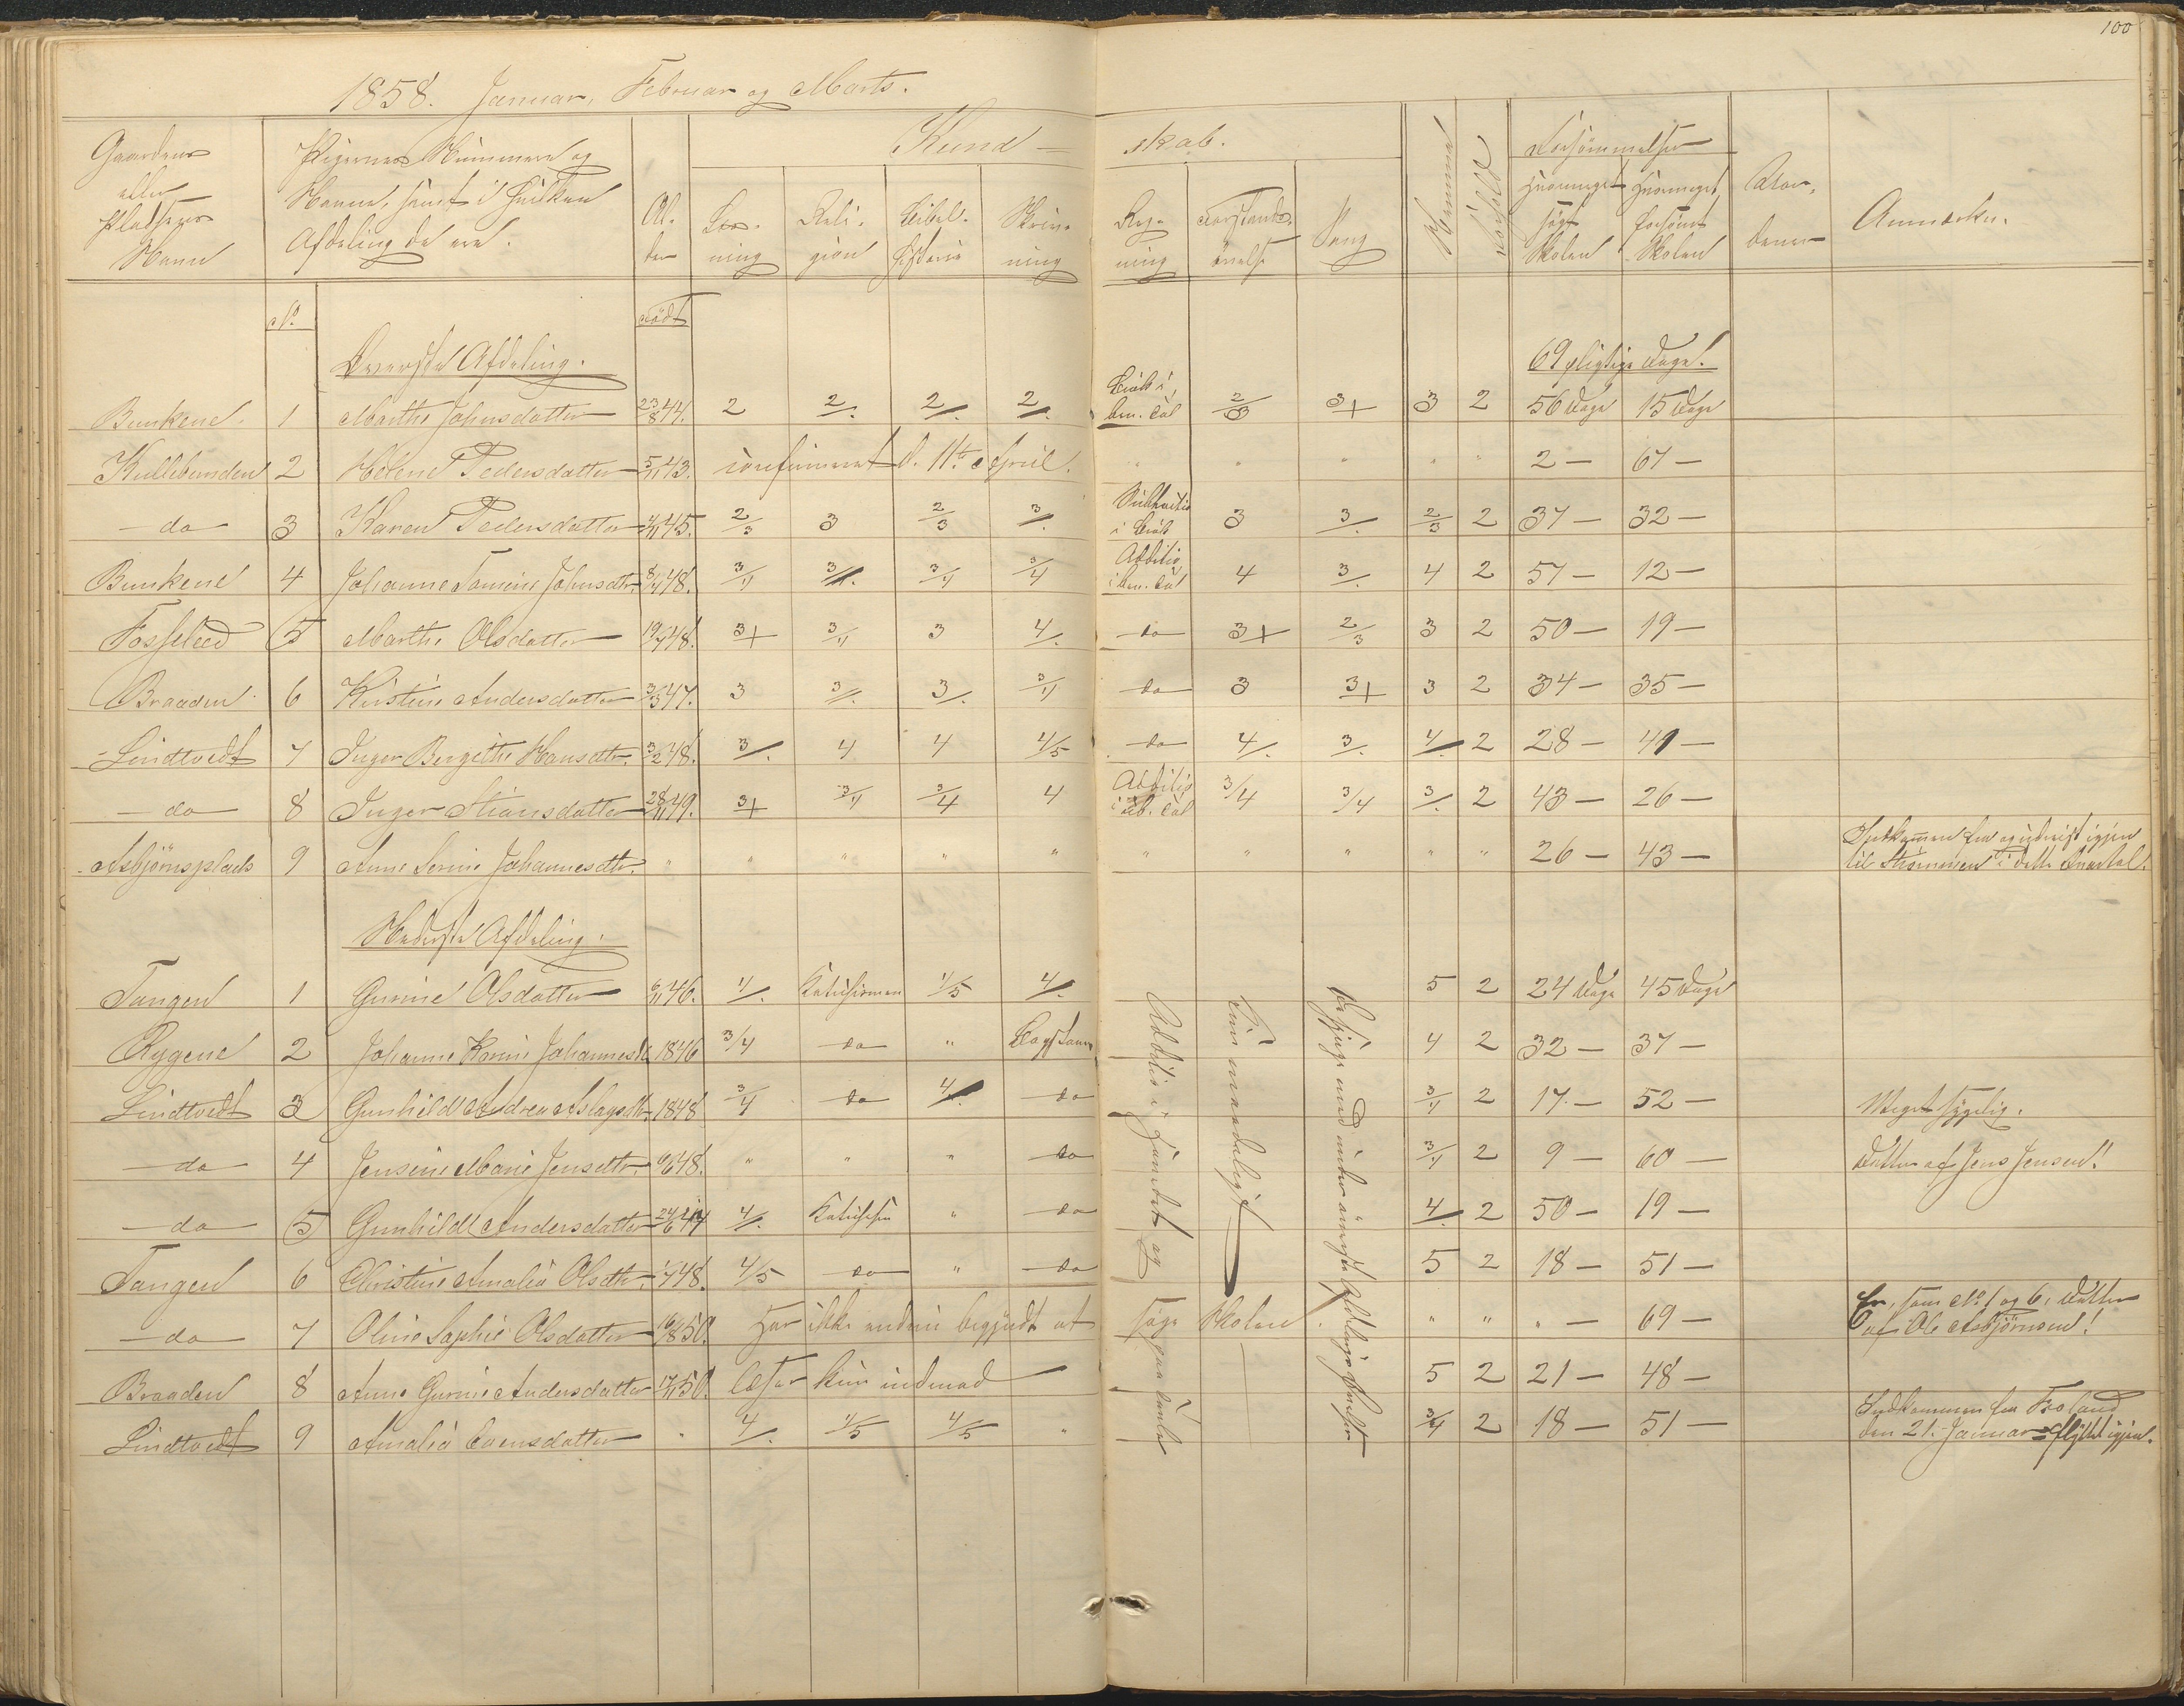 100
1858. Januar, Februar og Marts.
Gaardens eller Pladsens Navn
Pigernes Nummere og Navne, samt i hvilken Afdeling de ere.
Alder
Kundskab.
Læsning Religion Bibelhistorie Skrivning Regning Forstandsøvelse Sang
Nemme Forhold
Forsømmelser
Hvormeget søgt Skolen Hvormeget forsømt Skolen
Anmærkn.
No. Født
Øverste Afdeling.
69 pligtige Dage!
Bunkene 1 Marthe Johnsdatter 23/8 44. 2 2/. 2/. 2/. Brøk i ben. Tal 2/3 3+ 3 2 56 Dage 15 Dage
Kullebunden 2 Helene Pedersdatter 5/11 43. confirmeret d. 11te April. " " " " 2 — 67 —
— do — 3 Karen Pedersdatter 4/11 45. 2/3 3 2/3 3/. i Brøk 3 3/. 2/3 2 37 — 32 —
Bunkene 4 Johanne Tomine Johnsdtr. 8/4 48. 3/4 3/. 3/4 3/4 Additio i ben. Tal 4 3/. 4 2 57 — 12 —
Fosselied 5 Marthe Olsdatter 19/7 48. 3+ 3/4 3 4/. — do — 3+ 2/3 3 2 50 — 19 —
Braaden 6 Kirstine Andersdatter 3/3 47. 3 3/. 3/. 3/4 — do — 3 3+ 3 2 34 — 35 —
Lindtvedt 7 Inger Bergithe Hansdtr. 3/2 48. 3/. 4 4 4/5 — do — 4/. 3/. 4/. 2 28 — 41 —
— do — 8 Inger Stiansdatter 28/11 49. 3+ 3/4 3/4 4 Additio i ub. Tal 3/4 3/4 3/. 2 43 — 26 —
Asbjørnsplads 9 Anne Serine Johannesdtr. " " " " " " " " " " 26 — 43 — Indkommen fra og igjen
til Strømmen i dette Kvartal.
Nederste Afdeling.
Tangen 1 Gurine Olsdatter 6/11 46. 4/. Katechismen 4/5 4/. 5 2 24 Dage 45 Dage
Rygene 2 Johanne Karine Johannesd. 1846 3/4 do " Bogstaver 4 2 32 — 37 —
Lindtvedt 3 Gunhild Andrea Aslagsdtr. 1848 3/4 do 4/. — do 3/4 2 17 — 52 — Meget sygelig.
— do — 4 Jensine Marie Jensdtr. 6/6 48. " " " — do 3/4 2 9 — 60 — Datter af Jens Jensen!
— do — 5 Gunhild Andersdatter 24/6 47 4/. Katechism " — do 4/. 2 50 — 19 —
Tangen 6 Christine Amalia Olsdtr. 1/7 48. 4/5 — do " — do 5 2 18 — 51 —
— do — 7 Oline Sophie Olsdatter 16/8 50. Har ikke endnu begyndt at søge Skolen. " " " — 69 — Er, som No. 1 og 6, Datter
af Ole Asbjørnsen!
Braaden 8 Anne Gurine Andersdatter 17/11 50. læser kun indenad — 5 2 21 — 48 —
Lindtvedt 9 Amalia Evensdatter " 4/. 4/5 4/5 " 3/4 2 18 — 51 — Indkommen fra Froland
den 21. Januar og flyttet igjen.
Additio i Hundrede og paa Tavle
Kun maadeligt
Sjunge med under øverste Afdelings